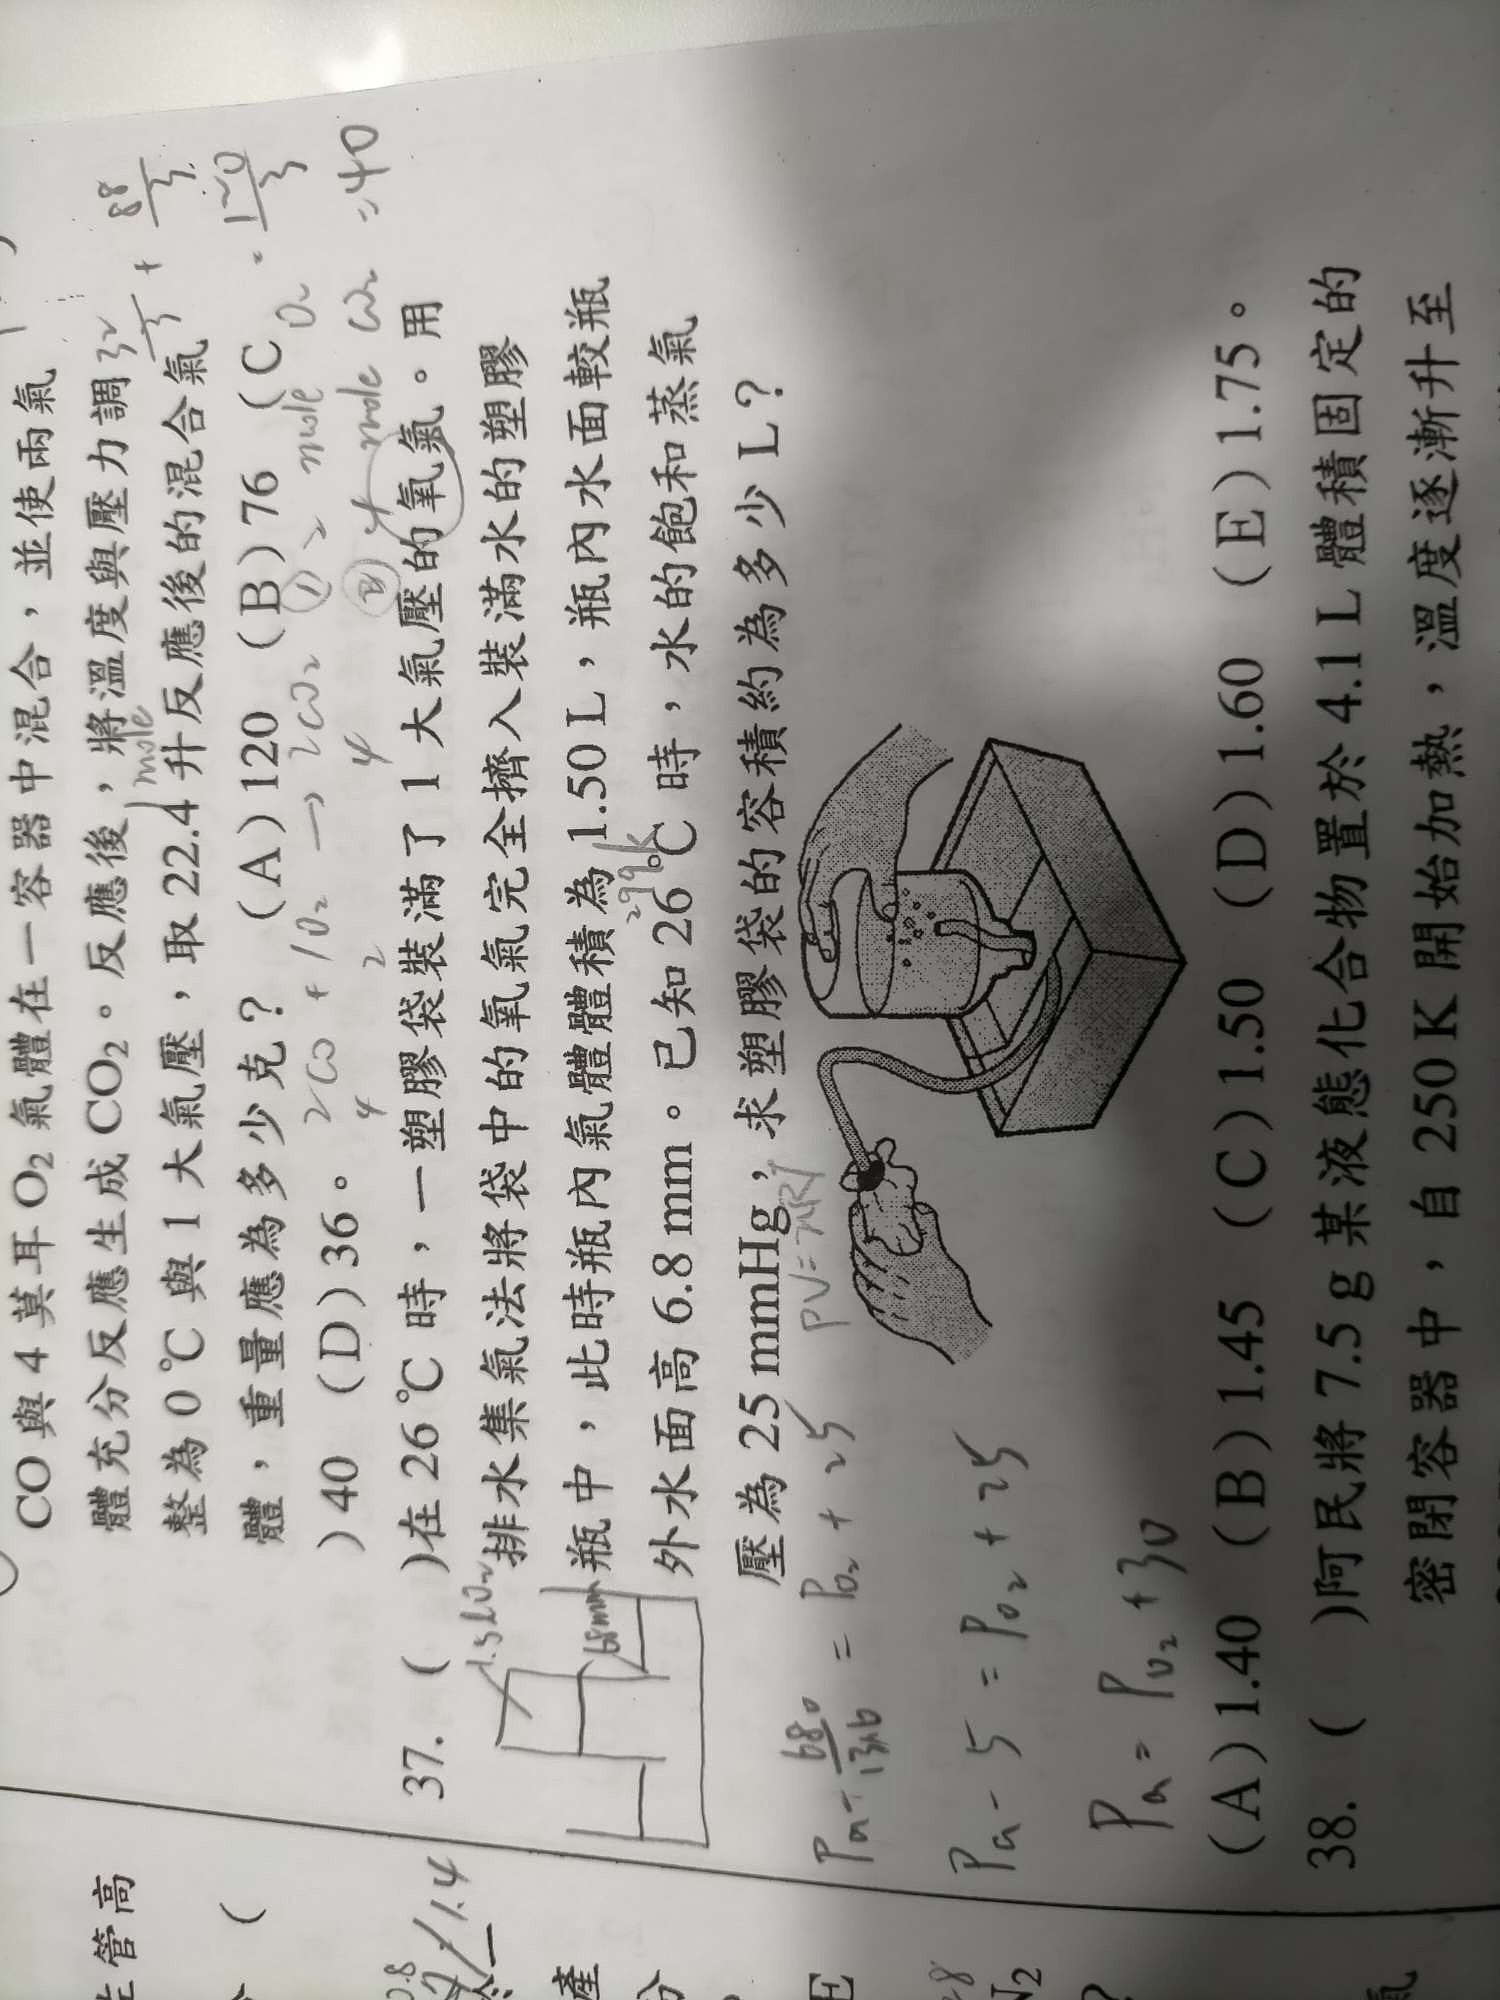 CO 與 4 莫耳 O₂ 氣體在一容器中混合，並使兩氣
體充分反應生成 CO₂。反應後，將溫度與壓力調
整為 0℃ 與 1 大氣壓，取 22.4 升反應後的混合氣
體，重量應為多少克？ (A)120 (B)76 (C
)40 (D)36。
mole
32/3 + 88/3
= 120/3
= 40
2CO + 1O₂ → 2CO₂
4 2 4
(1) 2 mole O₂
(2) 4 mole CO₂
37. ( )在 26℃ 時，一塑膠袋裝滿了 1 大氣壓的氧氣。用
排水集氣法將袋中的氧氣完全擠入裝滿水的塑膠
瓶中，此時瓶內氣體體積為 1.50 L，瓶內水面較瓶
外水面高 6.8 mm。已知 26℃ 時，水的飽和蒸氣
壓為 25 mmHg，求塑膠袋的容積約為多少 L？
1.5L O₂
68mm
299K
PV=nRT
Pa - 680/13.6 = Po₂ + 25
Pa - 5 = Po₂ + 25
Pa = Po₂ + 30
(A)1.40 (B)1.45 (C)1.50 (D)1.60 (E)1.75。
38. ( )阿民將 7.5 g 某液態化合物置於 4.1 L 體積固定的
密閉容器中，自 250 K 開始加熱，溫度逐漸升至
管高
(
1.4
產
E
N₂
?
氣